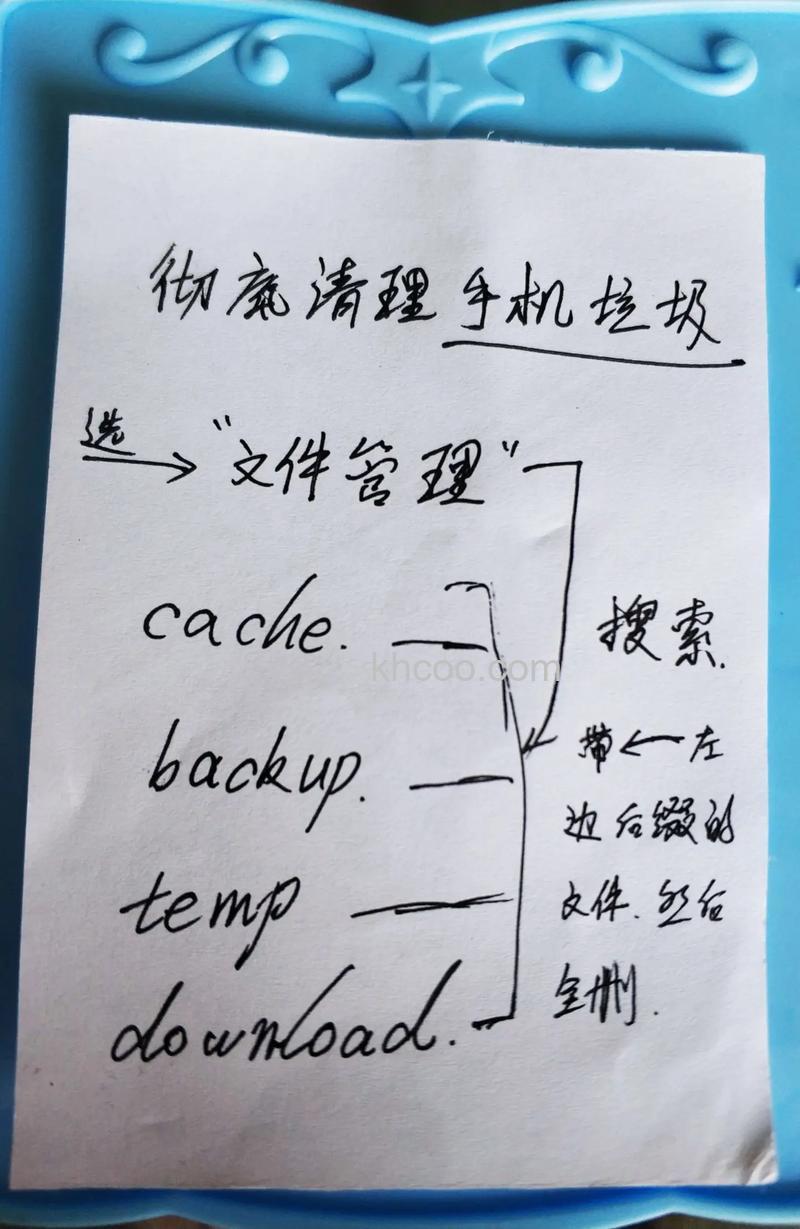 彻底清理手机垃圾
选
"文件管理"
cache.
搜索.
khcoo.com
backup.
带←左
边后缀的
temp
文件.然后
全删.
download.